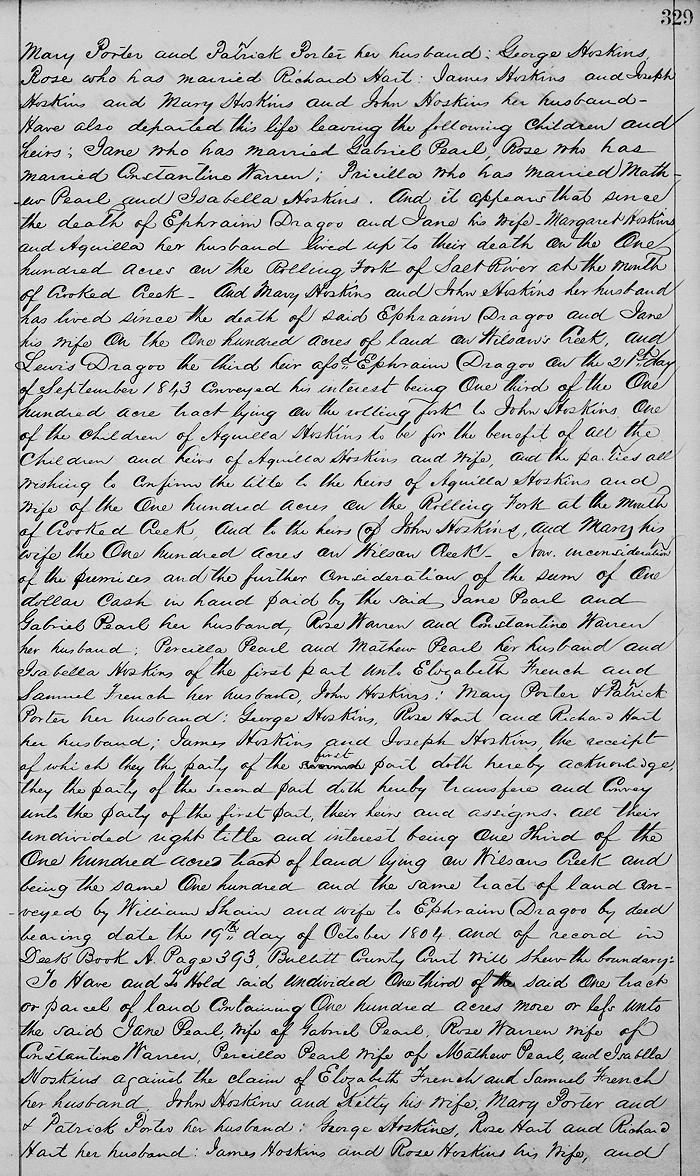 329
Mary Porter and Patrick Porter her husband: George Hoskins,
Rose who has married Richard Hart: James Hoskins and Joseph
Hoskins and Mary Hoskins and John Hoskins her husband –
Have also departed this life leaving the following children and
heirs; Jane who has married Gabriel Pearl, Rose who has
married Constantine Warren; Pricilla who has married Math-
ew Pearl and Isabella Hoskins. And it appears that since
the death of Ephraim Dragoo and Jane his wife – Margaret Hoskins
and Aquilla her husband lived up to their death on the One
hundred acres on the Rolling Fork of Salt River at the mouth
of Crooked Creek – And Mary Hoskins and John Hoskins her husband
has lived since the death of said Ephraim Dragoo and Jane
his wife on the One hundred acres of land on Wilson's Creek, and
Lewis Dragoo the third heir afsd Ephraim Dragoo on the 21st Day
of September 1843 conveyed his interest being One third of the One
hundred acre tract lying on the rolling fork to John Hoskins One
of the children of Aquilla Hoskins to be for the benefit of all the
Children and heirs of Aquilla Hoskins and wife, and the parties all
wishing to confirm the title to the heirs of Aquilla Hoskins and
wife of the One hundred acres on the Rolling Fork at the mouth
of Crooked Creek, and to the heirs of John Hoskins, and Mary his
wife the One hundred acres on Wilson Creek – Now inconsideration
of the premises and the further consideration of the sum of One
dollar cash in hand paid by the said Jane Pearl and
Gabriel Pearl her husband, Rose Warren and Constantine Warren
her husband; Percilla Pearl and Mathew Pearl her husband and
Isabella Hoskins of the first part unto Elizabeth French and
Samuel French her husband, John Hoskins: Mary Porter & Patrick
Porter her husband: George Hoskins, Rose Hart and Richard Hart
her husband; James Hoskins and Joseph Hoskins, the receipt
of which they the party of the first part doth hereby acknowledge,
they the party of the second part doth hereby transfere and Convey
unto the party of the first part, their heirs and assigns. all their
undivided right title and interest being One third of the
One hundred acres tract of land lying on Wilsons Creek and
being the same One hundred and the same tract of land con-
veyed by William Shain and wife to Ephraim Dragoo by deed
bearing date the 19th day of October 1804 and of record in
Deek Book A. Page 393, Bullitt County Court Will shew the boundary:
To Have and To Hold said undivided One third of the said One tract
or parcel of land Containing One hundred acres more or less unto
the said Jane Pearl, wife of Gabriel Pearl, Rose Warren wife of
Constantine Warren, Percilla Pearl wife of Mathew Pearl, and Isablla
Hoskins against the claim of Elizabeth French and Samuel French
her husband, John Hoskins and Kitty his wife, Mary Porter and
& Patrick Porter her husband: George Hoskins, Rose Hart and Richard
Hart her husband: James Hoskins and Rose Hoskins his wife, and